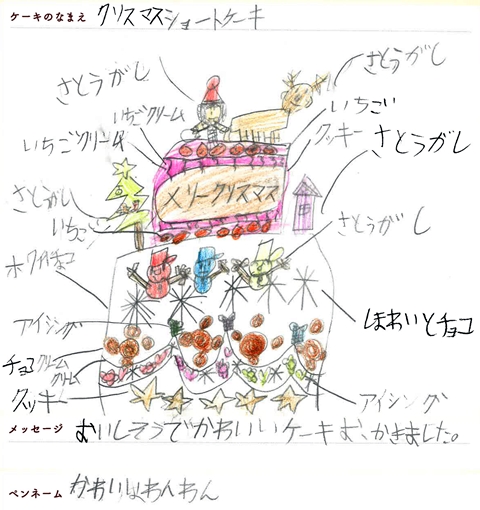 ケーキのなまえ クリスマスショートケーキ
さとうがし
さとうがし
いちごクリーム
いちごい
いちごクリーム
クッキー
さとうがし
メリークリスマス
さとうがし
いちご
さとうがし
ホワイトチョコ
ほわいとチョコ
アイシング
チョコクリーム
クリーム
クッキー
アイシング
メッセージ おいしそうでかわいいケーキお、かきました。
ペンネーム かわいいわんわん